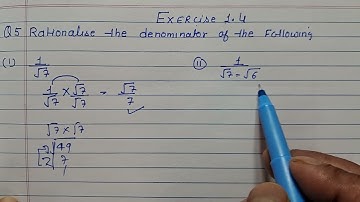 Exercise 1.4
Q5 Rationalise the denominator of the following
(i) 1/√7
1/√7 × √7/√7 = √7/7
√7 × √7
7 49
7
1
(ii) 1/√7-√6